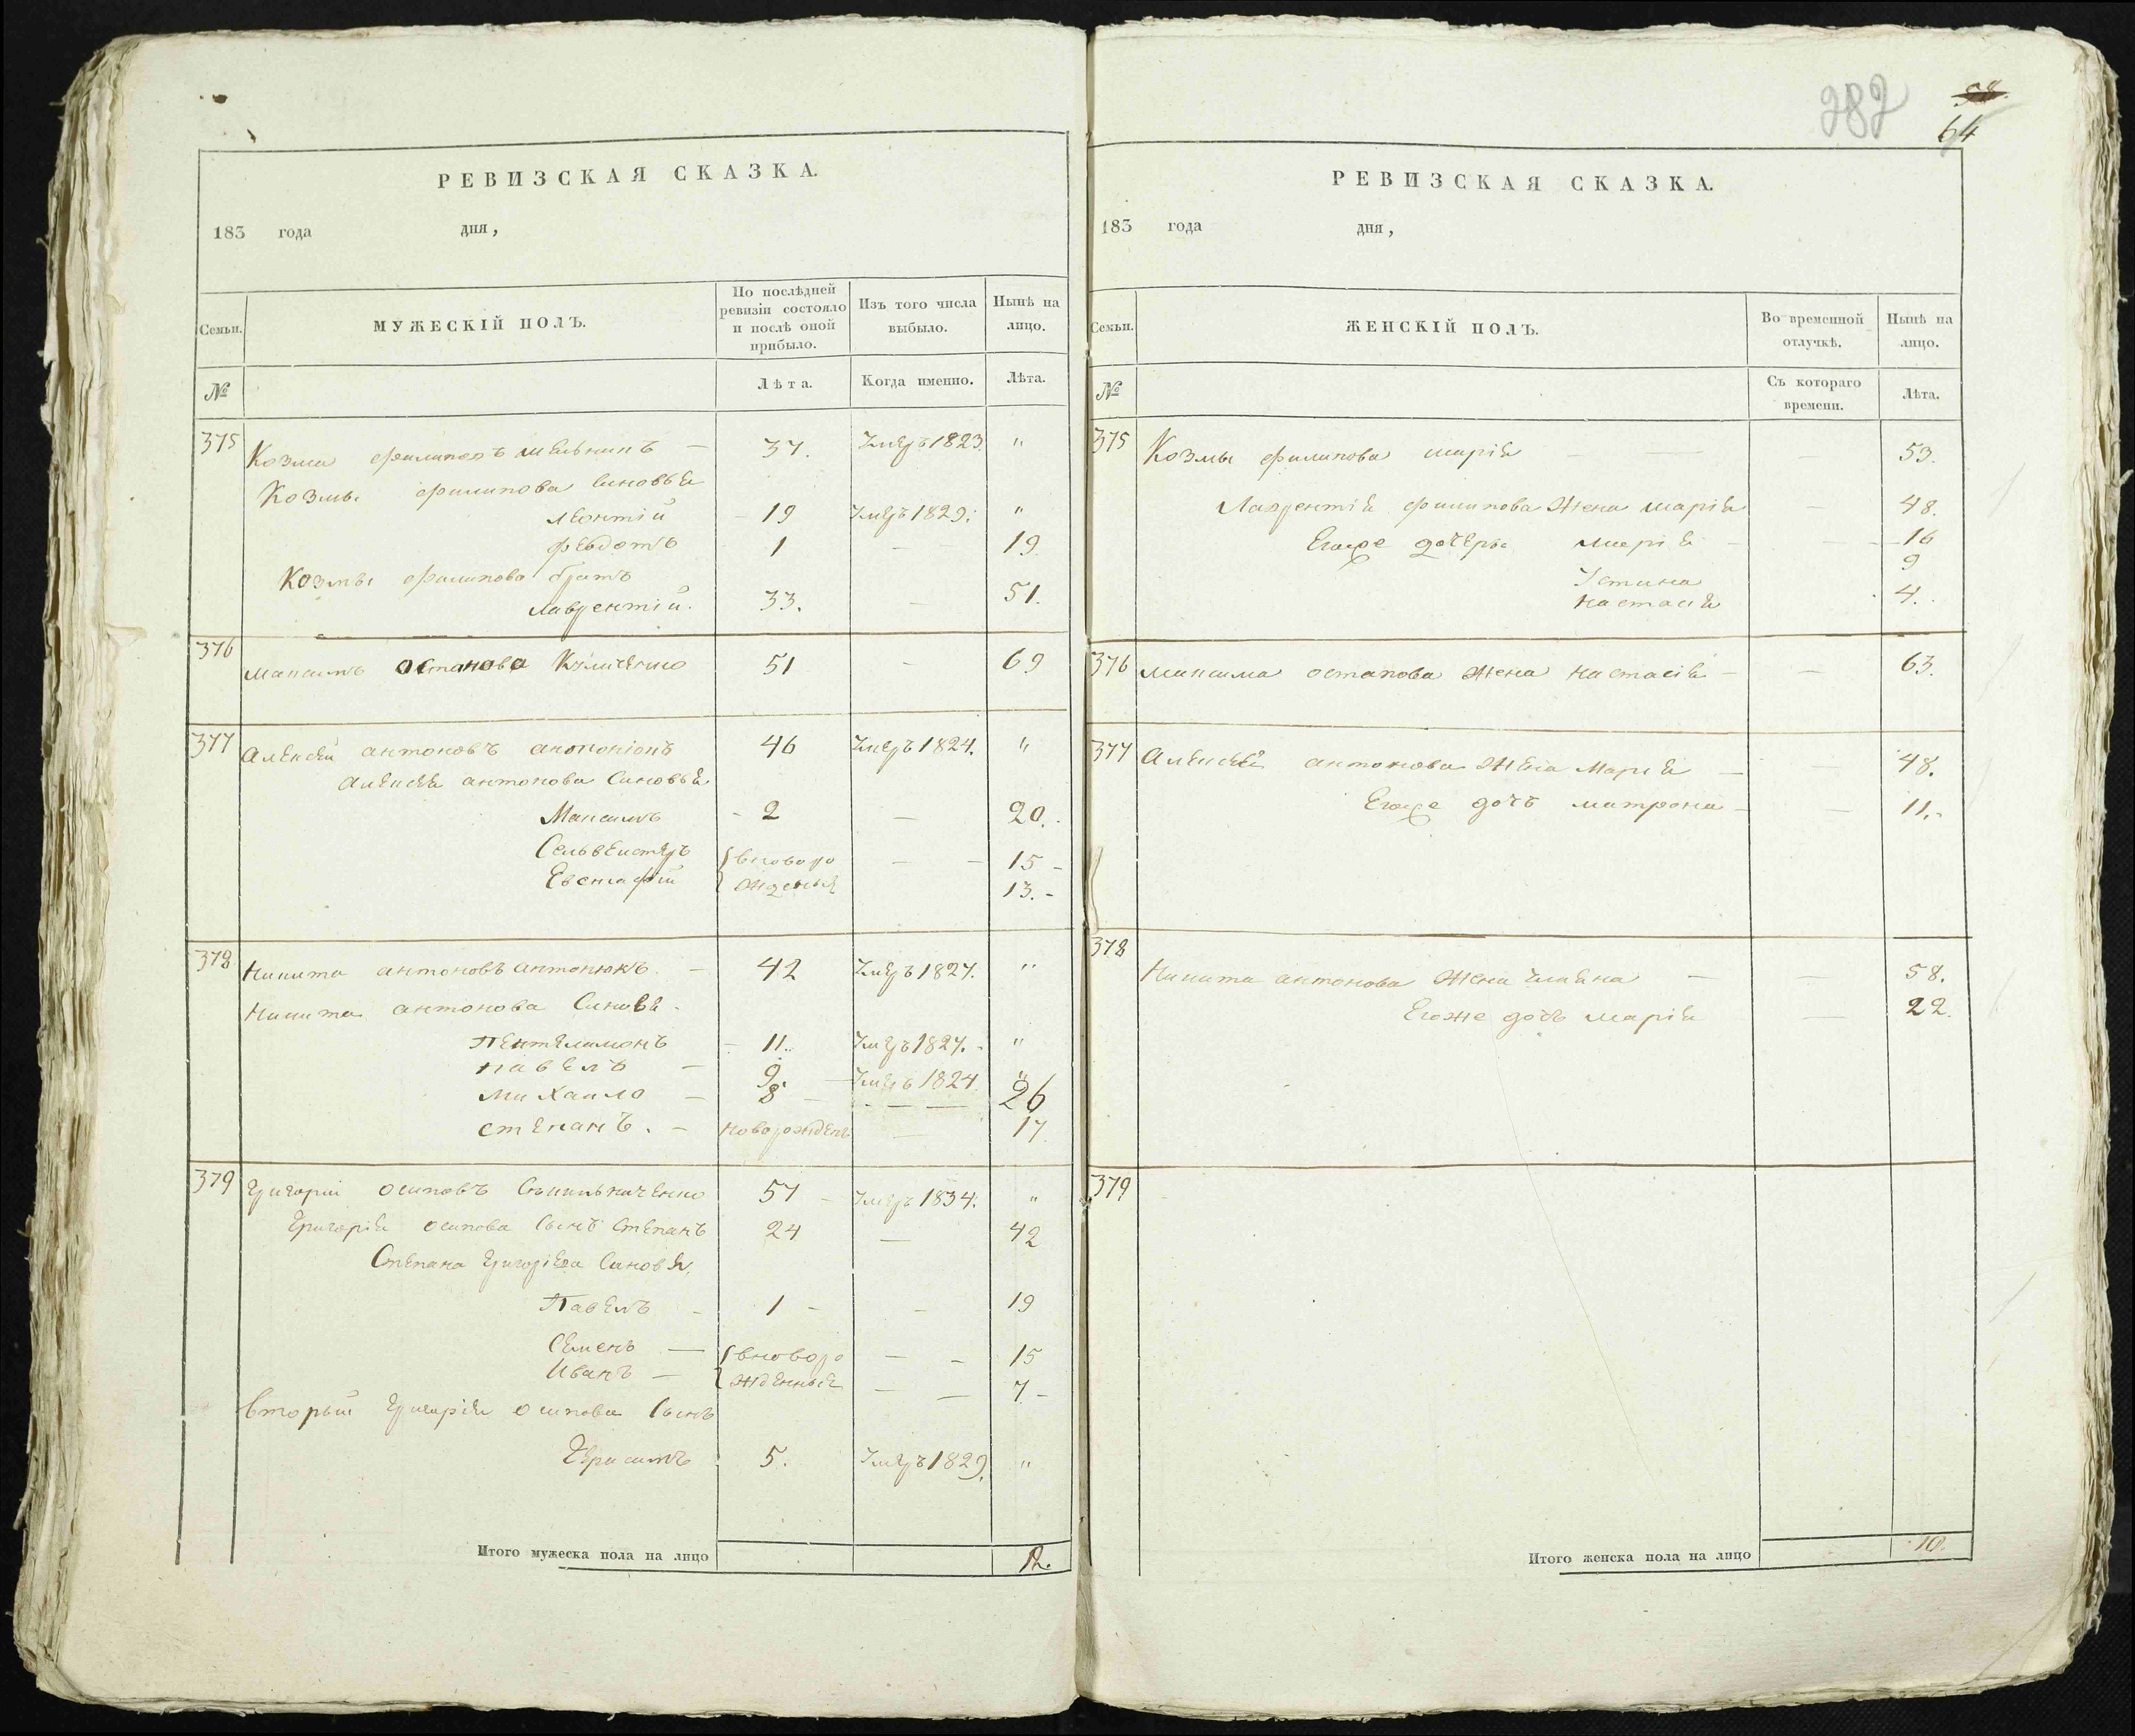 РЕВИЗСКАЯ СКАЗКА.
183 года дня,
Семьи. МУЖЕСКІЙ ПОЛЪ. По послѣдней ревизіи состояло и послѣ оной прибыло. Изъ того числа выбыло. Нынѣ на лицо.
№ Лѣта. Когда именно. Лѣта.
375 Козма филиповъ мельникъ — 37. Умеръ 1823 "
Козмы филипова Синовья
Леонтій 19 Умеръ 1829. "
федотъ 1 — 19
Козмы филипова братъ
Лаврентій. 33. — 51.
376 Максимъ Остапова 51 — 69
377 Алексей антоновъ 46 Умеръ 1824. "
Алексея антонова Синовья
Максимъ - 2 — 20.
Сельвестеръ вноворо — 15 -
Евстафій жденыя 13. -
378 Никита антоновъ антонюкъ. — 42 Умеръ 1827. "
Никита антонова Синовя.
Пентелимонъ - 11. Умеръ 1827. "
Павелъ — 9. Умеръ 1824 "
Михаило — 8 — 26
Степанъ. — новорожденъ — 17
379 Григорій осиповъ 57 Умеръ 1834. "
Григорія осипова Сынъ Степанъ 24 — 42
Степана Григоріева Синовя,
Павелъ - 1 - — 19
Семенъ — вноворо — - 15
Иванъ — жденныя — — 7 -
Вторый Григорія осипова Сынъ
Герасимъ 5. Умеръ 1829. "
Итого мужеска пола на лицо 12.
282
58.
64
РЕВИЗСКАЯ СКАЗКА.
183 года дня,
Семьи. ЖЕНСКІЙ ПОЛЪ. Во временной отлучкѣ. Нынѣ на лицо.
№ Съ котораго времени. Лѣта.
375 Козмы филипова марія — — 53.
Лаврентія филипова Жена марія — 48.
Егоже дочеры марія - — 16
Устина 9
настасія 4.
376 максима остапова Жена настасія — — 63.
377 Алексея антонова Жена Марія — — 48.
Егоже дочъ матрона — — 11.
378
Никита антонова Жена — — 58.
Егоже дочъ марія — 22.
379
Итого женска пола на лицо 10.